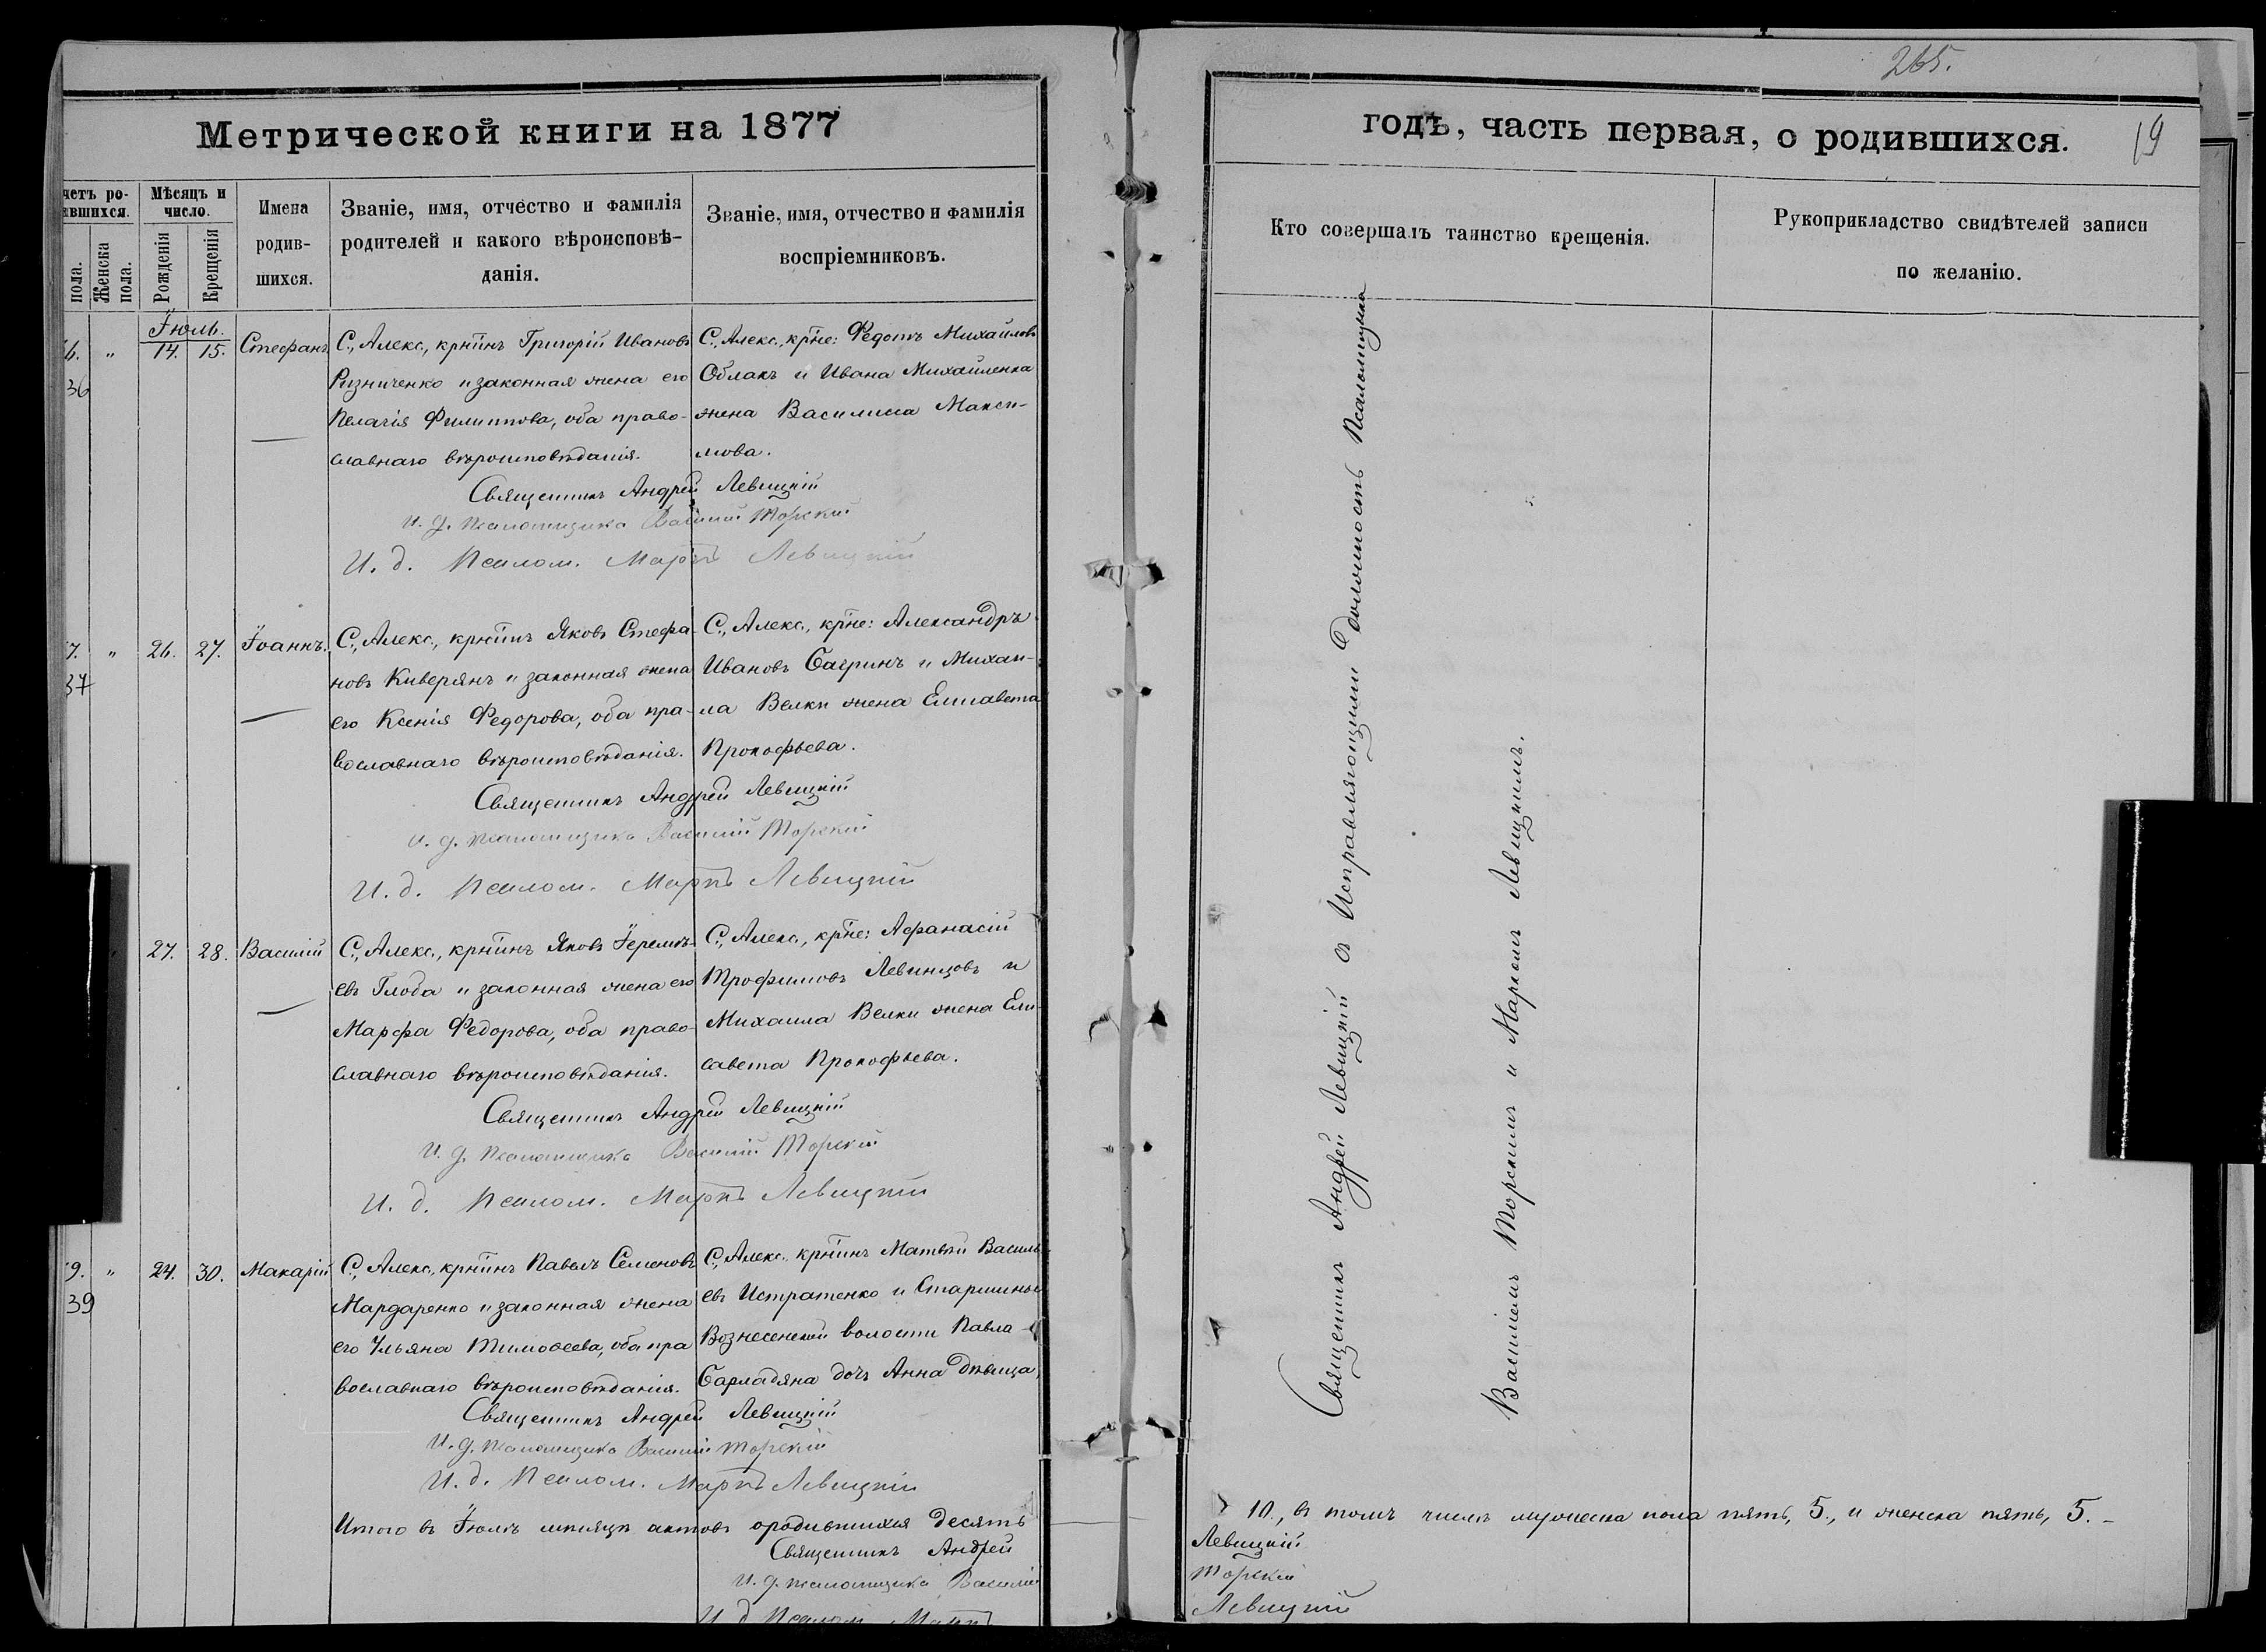 265.
Метрической книги на 1877
годъ, часть первая, о родившихся.
19
четъ ро-
ившихся.
Мѣсяцъ и
число.
Имена
родив-
шихся.
Званіе, имя, отчество и фамилія
родителей и какого вѣроисповѣ-
данія.
Званіе, имя, отчество и фамилія
воспріемниковъ.
Кто совершалъ таинство крещенія.
Рукоприкладство свидѣтелей записи
по желанію.
пола.
Женска
пола.
Рожденія
Крещенія
Іюль.
6. " 14. 15. Стефанъ
36
С., Алекс., кр҃нинъ Григорій Ивановъ
Ризниченко и законная жена его
Пелагія Филиппова, оба право-
славнаго вѣроисповѣданія.
С., Алекс., кр҃не: Федотъ Михайловъ
Облакъ и Ивана Михайленка
жена Василиса Макси-
мова.
Священникъ Андрей Левицкій
И. д. псаломщика Василій Торскій
И. д. Псалом. Маркъ Левицкій
7. " 26. 27. Іоаннъ.
37
С., Алекс., кр҃нинъ Яковъ Стефа-
новъ Киверянъ и законная жена
его Ксенія Федорова, оба пра-
вославнаго вѣроисповѣданія.
С., Алекс., кр҃не: Александръ
Ивановъ Багринъ и Михаи-
ла Велки жена Елисавета
Прокофьева.
Священникъ Андрей Левицкій
И. д. псаломщика Василій Торскій
И. д. Псалом. Маркъ Левицкій
27. 28. Василій
С., Алекс., кр҃нинъ Яковъ Іеремѣ-
евъ Глоба и законная жена его
Марфа Федорова, оба право-
славнаго вѣроисповѣданія.
С., Алекс., кр҃не: Афанасій
Трофимовъ Левинцовъ и
Михаила Велки жена Ели-
савета Прокофьева.
Священникъ Андрей Левицкій
И. д. псаломщика Василій Торскій
И. д. Псалом. Маркъ Левицкій
9. " 24. 30. Макарій
39
С., Алекс., кр҃нинъ Павелъ Семеновъ
Мардаренко и законная жена
его Ульяна Тимоѳеева, оба пра
вославнаго вѣроисповѣданія.
С., Алекс. кр҃нинъ Матвѣй Василь-
евъ Истратенко и Старшины
Вознесенской волости Павла
Барладяна дочь Анна дѣвица,
Священникъ Андрей Левицкій
И. д. псаломщика Василій Торскій
И. д. Псалом. Маркъ Левицкій
Итого въ Іюлѣ мѣсяцѣ актовъ о родившихся десять
Священникъ Андрей
И. д. псаломщика Василій
И. д. Псалом. Маркъ
Священникъ Андрей Левицкій съ Исправляющими Должность Псаломщика
Василіемъ Торскимъ и Маркомъ Левицкимъ.
10., въ томъ числѣ мужеска пола пять, 5., и женска пять, 5. –
Левицкій
Торскій
Левицкій